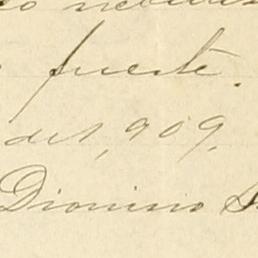 fuerte.
del 1,909.
Dionisio